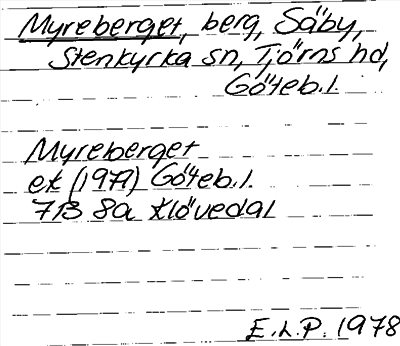 Myreberget, berg, Säby,
Stenkyrka sn, Tjörns hd,
Göteb. l.
Myreberget
ek (1977) Göteb. l.
7B 8a Klövedal
E.L.P. 1978